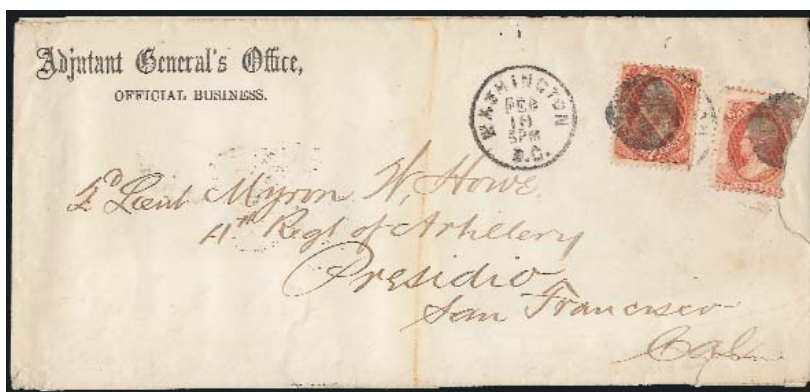 Adjutant General's Office,
OFFICIAL BUSINESS.
WASHINGTON
FEB
5PM
D.C.
2D Lieut Myron W. Howe.
4th Regt of Artillery
Presidio
San Francisco
Cal